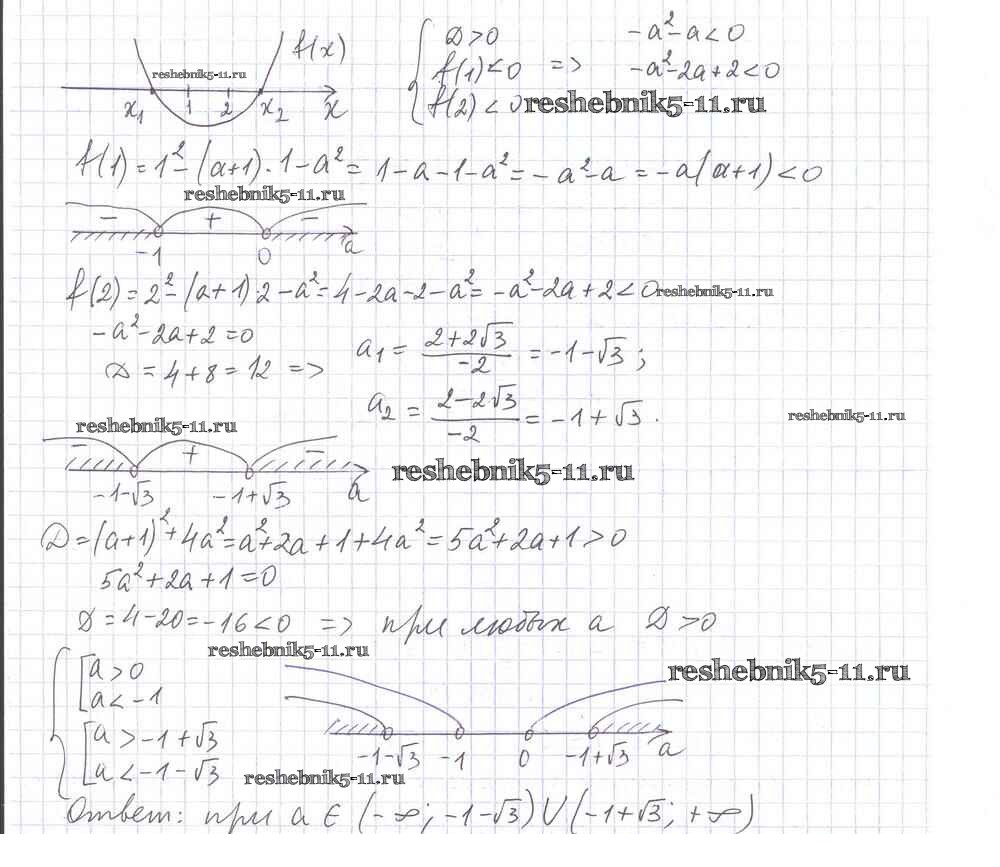 f(x)
reshebnik5-11.ru
x₁ 1 2 x₂ x
{ D>0
f(1)<0 =>
f(2)<0
-a²-a<0
-a²-2a+2<0
reshebnik5-11.ru
f(1)=1²-(a+1)·1-a²= 1-a-1-a²=-a²-a=-a(a+1)<0
reshebnik5-11.ru
- + -
-1 0 a
f(2)=2²-(a+1)·2-a²=4-2a-2-a²=-a²-2a+2<0
reshebnik5-11.ru
-a²-2a+2=0
D=4+8=12 =>
a₁=(2+2√3)/(-2)=-1-√3;
a₂=(2-2√3)/(-2)=-1+√3.
reshebnik5-11.ru
reshebnik5-11.ru
- + -
reshebnik5-11.ru
-1-√3 -1+√3 a
D=(a+1)²+4a²=a²+2a+1+4a²=5a²+2a+1>0
5a²+2a+1=0
D=4-20=-16<0 => при любых a D>0
reshebnik5-11.ru
{ [ a>0
a<-1
[ a>-1+√3
a<-1-√3
reshebnik5-11.ru
-1-√3 -1 0 -1+√3 a
reshebnik5-11.ru
Ответ: при a∈(-∞; -1-√3)∪(-1+√3; +∞)